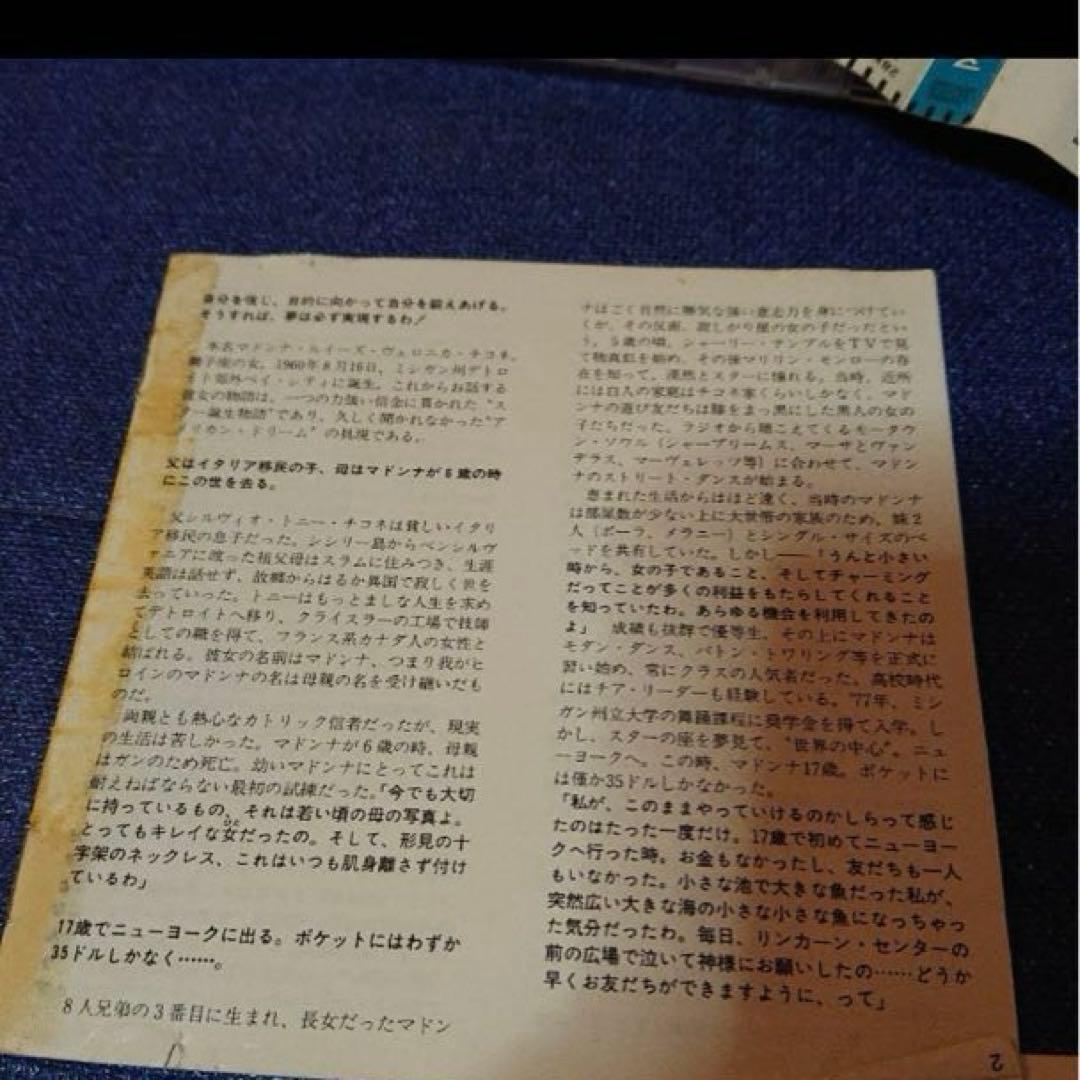 自分を信じ、目的に向かって自分を鍛えあげる。
そうすれば、夢は必ず実現するわ！
本名マドンナ・ルイーズ・ヴェロニカ・チコネ。
獅子座の女。1960年8月16日、ミシガン州デトロ
イト郊外ベイ・シティに誕生。これからお話する
彼女の物語は、一つの力強い信念に貫かれた“ス
ター誕生物語”であり、久しく聞かれなかった“ア
メリカン・ドリーム”の具現である。
父はイタリア移民の子、母はマドンナが6歳の時
にこの世を去る。
父シルヴィオ・トニー・チコネは貧しいイタリ
ア移民の息子だった。シシリー島からペンシルヴ
ァニアに渡った祖父母はスラムに住みつき、生涯
英語は話せず、故郷からはるか異国で寂しく世を
去っていった。トニーはもっとましな人生を求め
てデトロイトへ移り、クライスラーの工場で技師
としての職を得て、フランス系カナダ人の女性と
結ばれる。彼女の名前はマドンナ、つまり我がヒ
ロインのマドンナの名は母親の名を受け継いだも
のだ。
両親とも熱心なカトリック信者だったが、現実
の生活は苦しかった。マドンナが6歳の時、母親
はガンのため死亡。幼いマドンナにとってこれは
耐えねばならない最初の試練だった。「今でも大切
に持っているもの、それは若い頃の母の写真よ。
とってもキレイな女だったの。そして、形見の十
字架のネックレス、これはいつも肌身離さず付け
ているわ」
17歳でニューヨークに出る。ポケットにはわずか
35ドルしかなく……。
8人兄弟の3番目に生まれ、長女だったマドン
ナはごく自然に勝気な強い意志力を身につけてい
くが、その反面、寂しがり屋の女の子だったとい
う。5歳の頃、シャーリー・テンプルをTVで見
て物真似を始め、その後マリリン・モンローの存
在を知って、漠然とスターに憧れる。当時、近所
には白人の家庭はチコネ家くらいしかなく、マド
ンナの遊び友だちは膝をまっ黒にした黒人の女の
子たちだった。ラジオから聴こえてくるモータウ
ン・ソウル（シャープリームス、マーサとヴァン
デラス、マーヴェレッツ等）に合わせて、マドン
ナのストリート・ダンスが始まる。
恵まれた生活からはほど遠く、当時のマドンナ
は部屋数が少ない上に大世帯の家族のため、妹2
人（ポーラ、メラニー）とシングル・サイズのベ
ッドを共有していた。しかし——「うんと小さい
時から、女の子であること、そしてチャーミング
だってことが多くの利益をもたらしてくれること
を知っていたわ。あらゆる機会を利用してきたの
よ」　成績も抜群で優等生、その上にマドンナは
モダン・ダンス、バトン・トワリング等を正式に
習い始め、常にクラスの人気者だった。高校時代
にはチア・リーダーも経験している。'77年、ミシ
ガン州立大学の舞踊課程に奨学金を得て入学。し
かし、スターの座を夢見て、“世界の中心”、ニュ
ーヨークへ。この時、マドンナ17歳。ポケットに
は僅か35ドルしかなかった。
「私が、このままやっていけるのかしらって感じ
たのはたった一度だけ。17歳で初めてニューヨー
クへ行った時。お金もなかったし、友だちも一人
もいなかった。小さな池で大きな魚だった私が、
突然広い大きな海の小さな小さな魚になっちゃっ
た気分だったわ。毎日、リンカーン・センターの
前の広場で泣いて神様にお願いしたの……どうか
早くお友だちができますように、って」
2